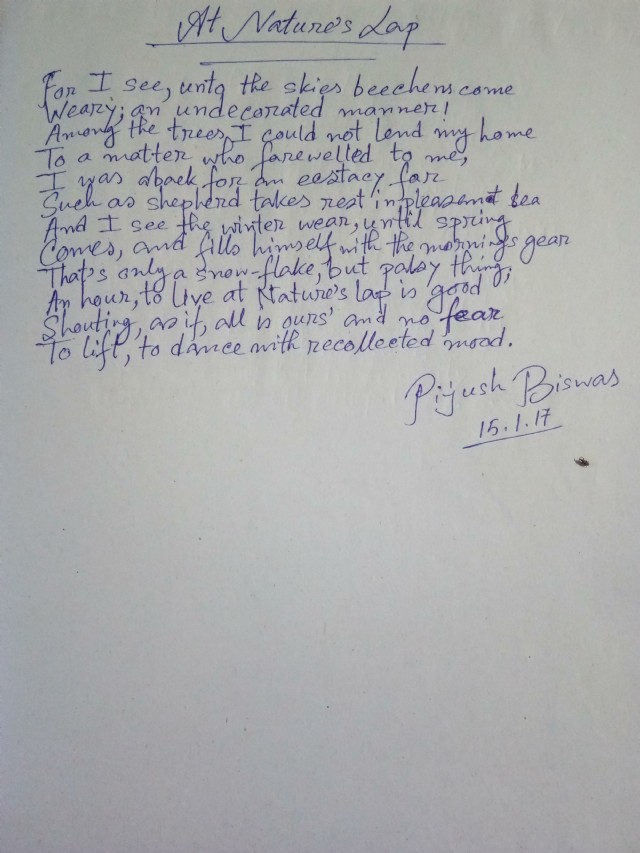 At Nature's Lap
For I see, unto the skies beechens come
Weary; an undecorated manner!
Among the trees, I could not lend my home
To a matter who farewelled to me,
I was aback for an ecstacy far
Such as shepherd takes rest in pleasant sea
And I see the winter wear, until spring
Comes, and fills himself with the morning's gear
That's only a snow-flake, but palsy thing;
An hour, to live at Nature's lap is good
Shouting, as if, all is ours' and no fear
To lift, to dance with recollected mood.
Pijush Biswas
15.1.17